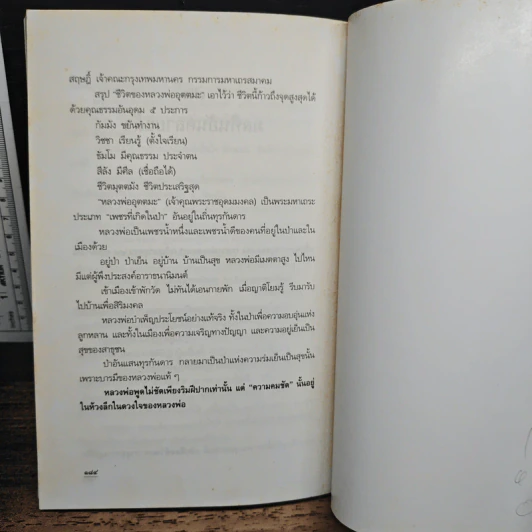 สฤษฎิ์ เจ้าคณะกรุงเทพมหานคร กรรมการมหาเถรสมาคม
สรุป "ชีวิตของหลวงพ่ออุตตมะ" เอาไว้ว่า ชีวิตนี้ก้าวถึงจุดสูงสุดได้
ด้วยคุณธรรมอันอุดม ๕ ประการ
กัมมัง ขยันทำงาน
วิชชา เรียนรู้ (ตั้งใจเรียน)
ธัมโม มีคุณธรรม ประจำตน
สีลัง มีศีล (เชื่อถือได้)
ชีวิตมุตตมัง ชีวิตประเสริฐสุด
"หลวงพ่ออุตตมะ" (เจ้าคุณพระราชอุดมมงคล) เป็นพระมหาเถระ
ประเภท "เพชรที่เกิดในป่า" อันอยู่ในถิ่นทุรกันดาร
หลวงพ่อเป็นเพชรน้ำหนึ่งและเพชรน้ำดีของคนที่อยู่ในป่าและใน
เมืองด้วย
อยู่ป่า ป่าเย็น อยู่บ้าน บ้านเป็นสุข หลวงพ่อมีเมตตาสูง ไปไหน
มีแต่ผู้พึงประสงค์อาราธนานิมนต์
เข้าเมืองเข้าพักวัด ไม่ทันได้เอนกายพัก เมื่อญาติโยมรู้ รีบมารับ
ไปบ้านเพื่อสิริมงคล
หลวงพ่อบำเพ็ญประโยชน์อย่างแท้จริง ทั้งในป่าเพื่อความอบอุ่นแห่ง
ลูกหลาน และทั้งในเมืองเพื่อความเจริญทางปัญญา และความอยู่เย็นเป็น
สุขของสาธุชน
ป่าอันแสนทุรกันดาร กลายมาเป็นป่าแห่งความร่มเย็นเป็นสุขนั้น
เพราะบารมีของหลวงพ่อแท้ ๆ
หลวงพ่อพูดไม่ชัดเพียงริมฝีปากเท่านั้น แต่ "ความคมชัด" นั้นอยู่
ในห้วงลึกในดวงใจของหลวงพ่อ